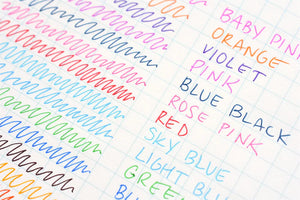 BABY PIN
ORANGE
VIOLET
PINK
BLUE BLACK
ROSE PINK
RED
SKY BLUE
LIGHT BLU
GREEN
BLU